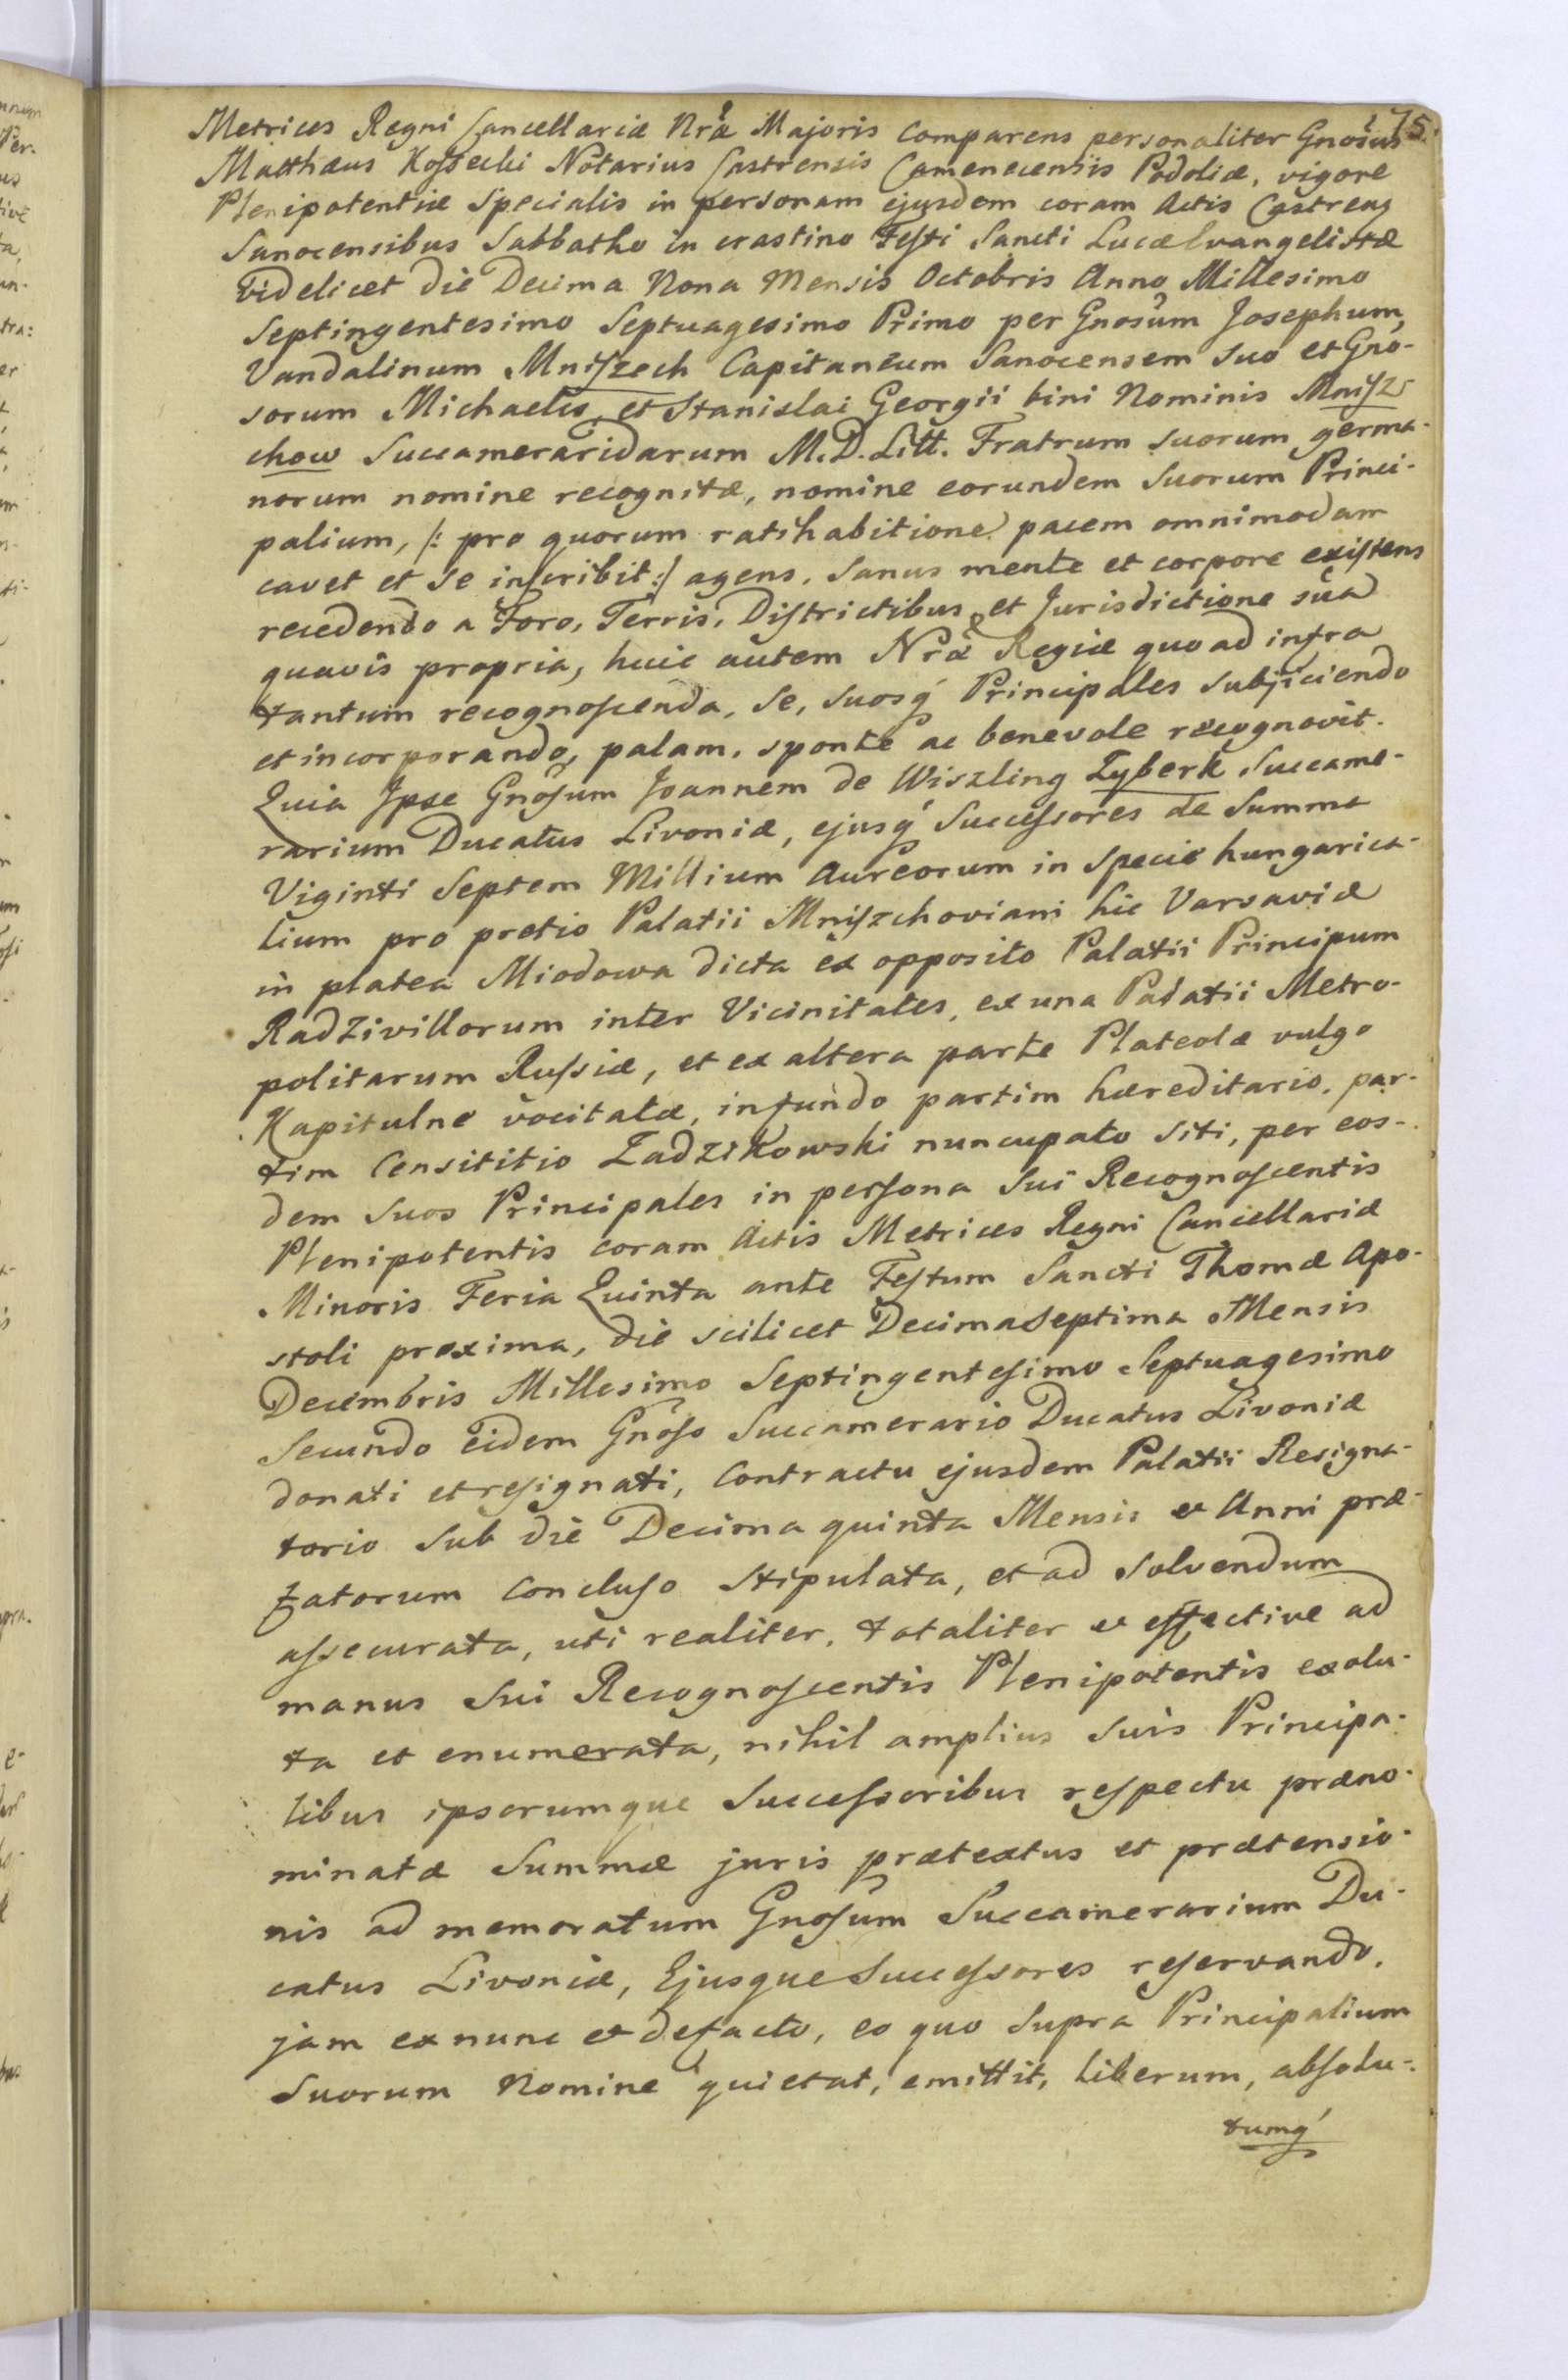 175.
Metrices Regni Cancellariæ Nræ Majoris Comparens personaliter Gnosus
Matthæus Kossecki Notarius Castrensis Camenecensis Podoliæ, vigore
Plenipotentiæ Specialis in personam ejusdem coram Actis Castrens
Sanocensibus Sabbatho in crastino Festi Sancti Lucæ Evangelistæ
videlicet die Decima Nona Mensis Octobris Anno Millesimo
Septingentesimo Septuagesimo Primo per Gnosum Josephum,
Vandalinum Mniszech Capitaneum Sanocensem suo et Gno-
sorum Michaelis, et Stanislai Georgii bini Nominis Mnisz
chow Succameraridarum M. D. Litt. Fratrum suorum germa-
norum nomine recognitæ, nomine eorundem Suorum Princi-
palium, /: pro quorum ratihabitione pacem omnimodam
cavet et se inscribit :/ agens. Sanus mente et corpore existens
recedendo a Foro, Terris, Districtibus et Jurisdictione sua
quavis propria, huic autem Nræ Regiæ quoad infra
tantum recognoscenda, Se, suosq́ Principales subjiciendo
et incorporando, palam, sponte ac benevole recognovit.
Quia Ipse Gnosum Joannem de Wiszling Zyberk Succame-
rarium Ducatus Livoniæ, ejusq́ Successores de Summa
Viginti Septem Millium Aureorum in Specie hungarica-
lium pro pretio Palatii Mniszchoviani hic Varsaviæ
in platea Miodowa dicta ex opposito Palatii Principum
Radzivillorum inter Vicinitates, ex una Palatii Metro-
politarum Russiæ, et ex altera parte Plateolæ vulgo
Kapitulne vocitatæ, in fundo partim hæreditario, par-
tim Censititio Zadzikowski nuncupato siti, per eos-
dem Suos Principales in persona Sui Recognoscentis
Plenipotentis coram Actis Metrices Regni Cancellariæ
Minoris Feria Quinta ante Festum Sancti Thomæ Apo-
stoli proxima, die scilicet Decima Septima Mensis
Decembris Millesimo Septingentesimo Septuagesimo
Secundo eidem Gnoso Succamerario Ducatus Livoniæ
donati et resignati, Contractu ejusdem Palatii Resigna-
torio Sub die Decima quinta Mensis et Anni præ-
fatorum concluso stipulata, et ad solvendum
assecurata, uti realiter, totaliter et effective ad
manus Sui Recognoscentis Plenipotentis exolu-
ta et enumerata, nihil amplius Suis Principa-
libus ipsorumque Successoribus respectu præno-
minatæ Summæ juris prætextus et prætensio-
nis ad memoratum Gnosum Succamerarium Du-
catus Livoniæ, Ejusque Successores reservando,
jam ex nunc et de facto, eo quo Supra Principalium
Suorum Nomine quietat, emittit, liberum, absolu-
tumq́